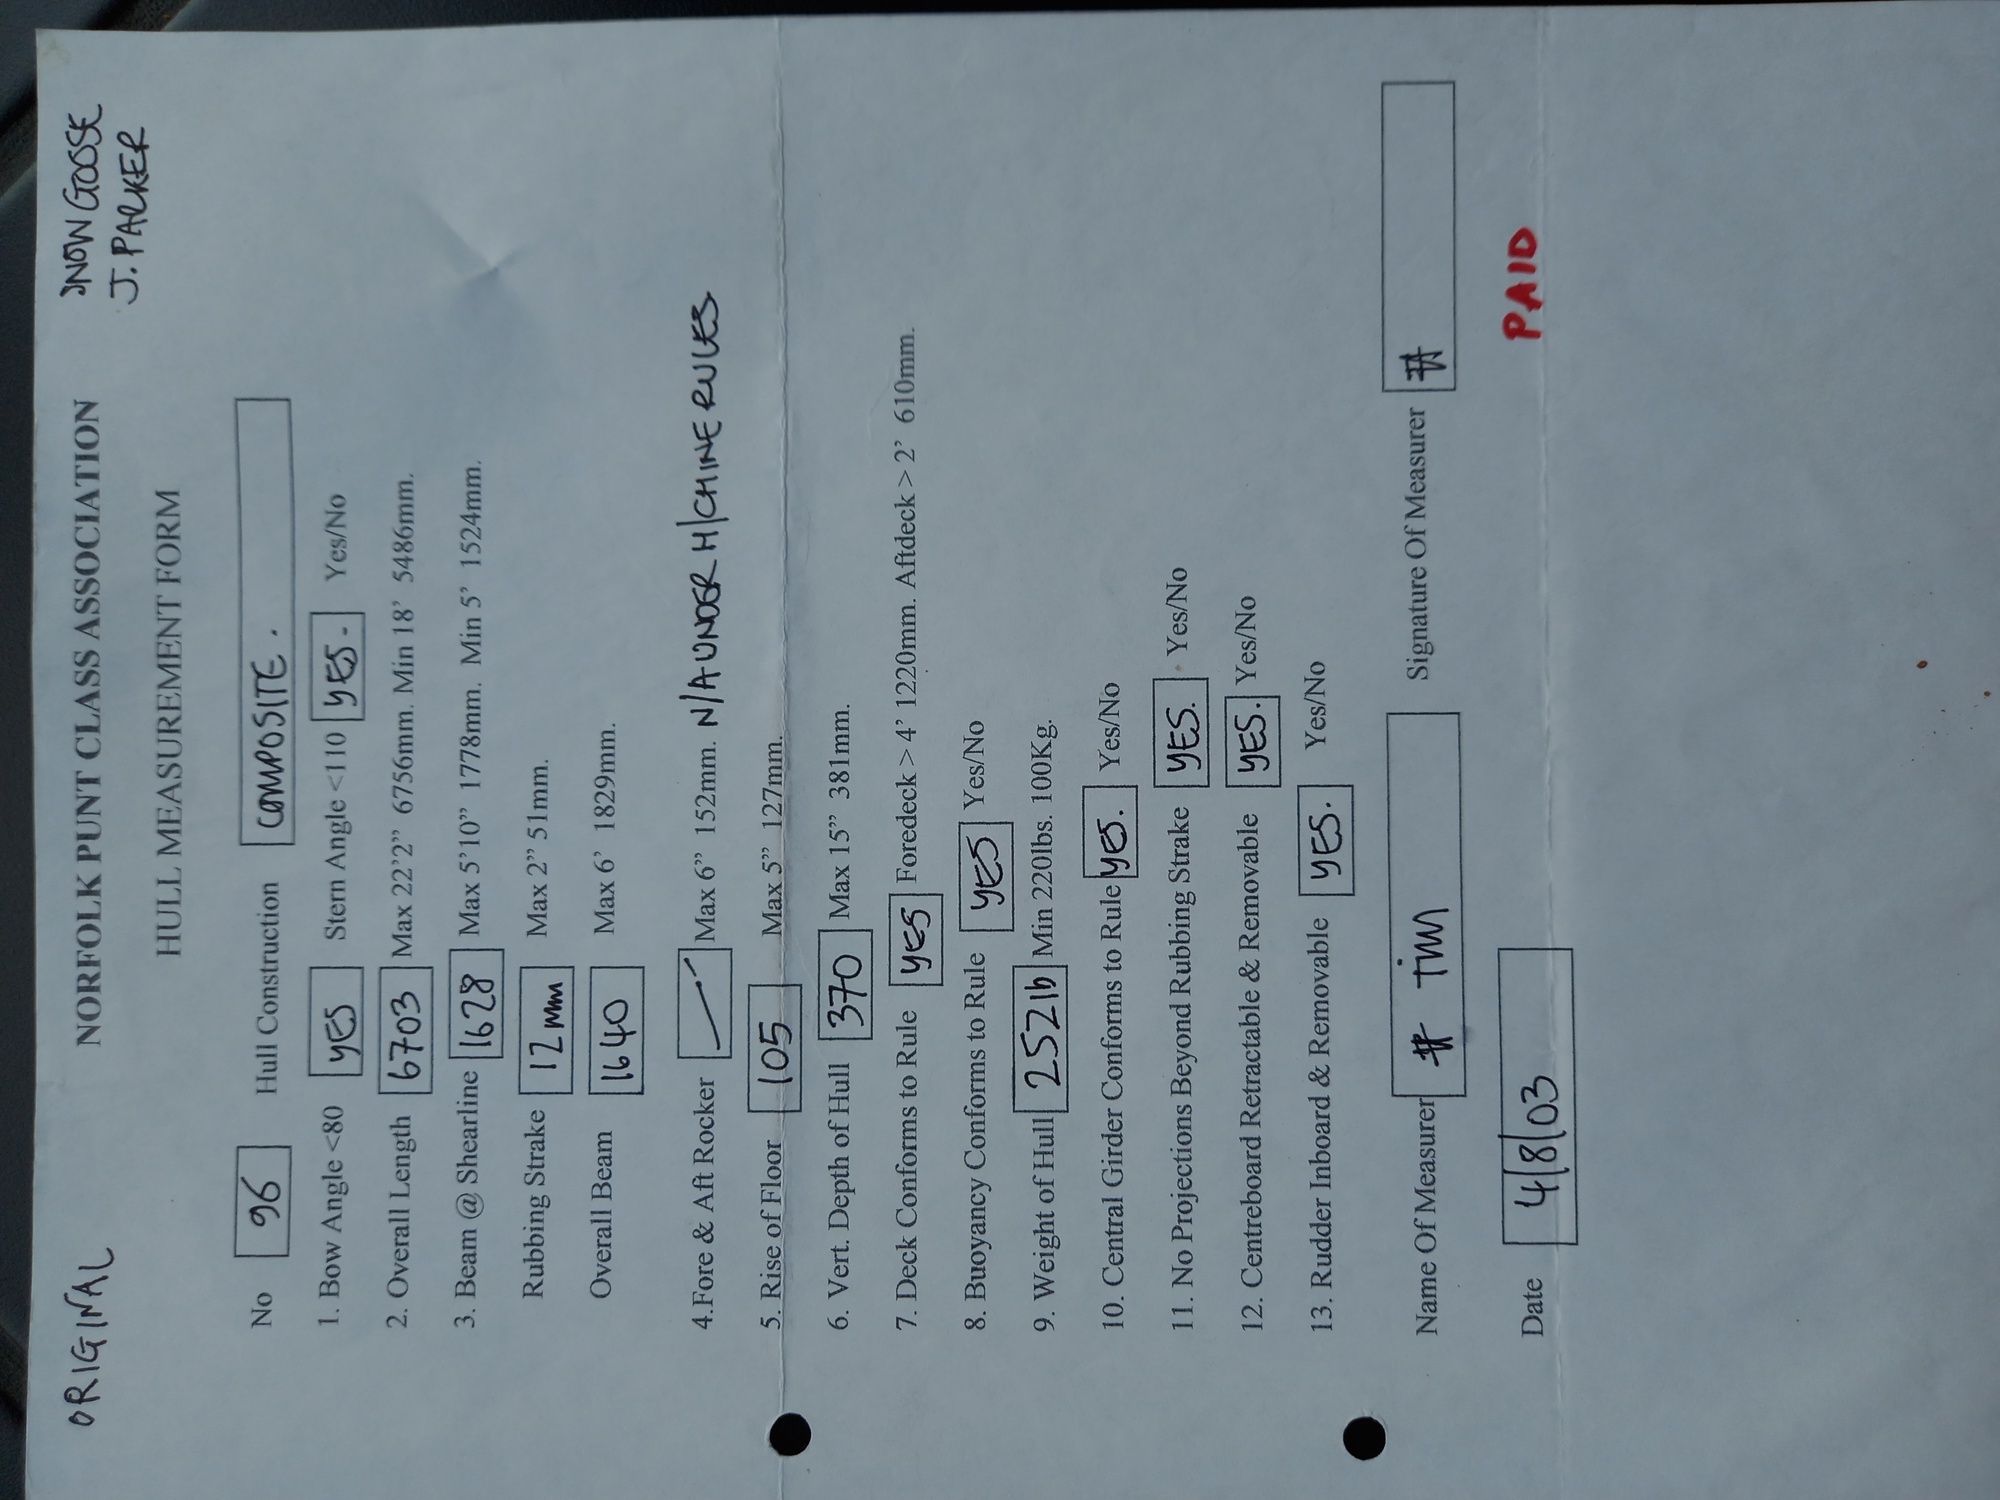 ORIGINAL
NORFOLK PUNT CLASS ASSOCIATION
SNOW GOOSE
J. PARKER
HULL MEASUREMENT FORM
No 96 Hull Construction COMPOSITE.
1. Bow Angle <80 YES Stern Angle <110 YES. Yes/No
2. Overall Length 6703 Max 22’2” 6756mm. Min 18’ 5486mm.
3. Beam @ Shearline 1628 Max 5’10” 1778mm. Min 5’ 1524mm.
Rubbing Strake 12mm Max 2” 51mm.
Overall Beam 1640 Max 6’ 1829mm.
4.Fore & Aft Rocker Max 6” 152mm. N/A UNDER H/CHINE RULES
5. Rise of Floor 105 Max 5” 127mm.
6. Vert. Depth of Hull 370 Max 15” 381mm.
7. Deck Conforms to Rule YES Foredeck > 4’ 1220mm. Aftdeck > 2’ 610mm.
8. Buoyancy Conforms to Rule YES Yes/No
9. Weight of Hull 252lb Min 220lbs. 100Kg.
10. Central Girder Conforms to Rule YES. Yes/No
11. No Projections Beyond Rubbing Strake YES. Yes/No
12. Centreboard Retractable & Removable YES. Yes/No
13. Rudder Inboard & Removable YES. Yes/No
Name Of Measurer Tim Signature Of Measurer
Date 4/8/03
PAID